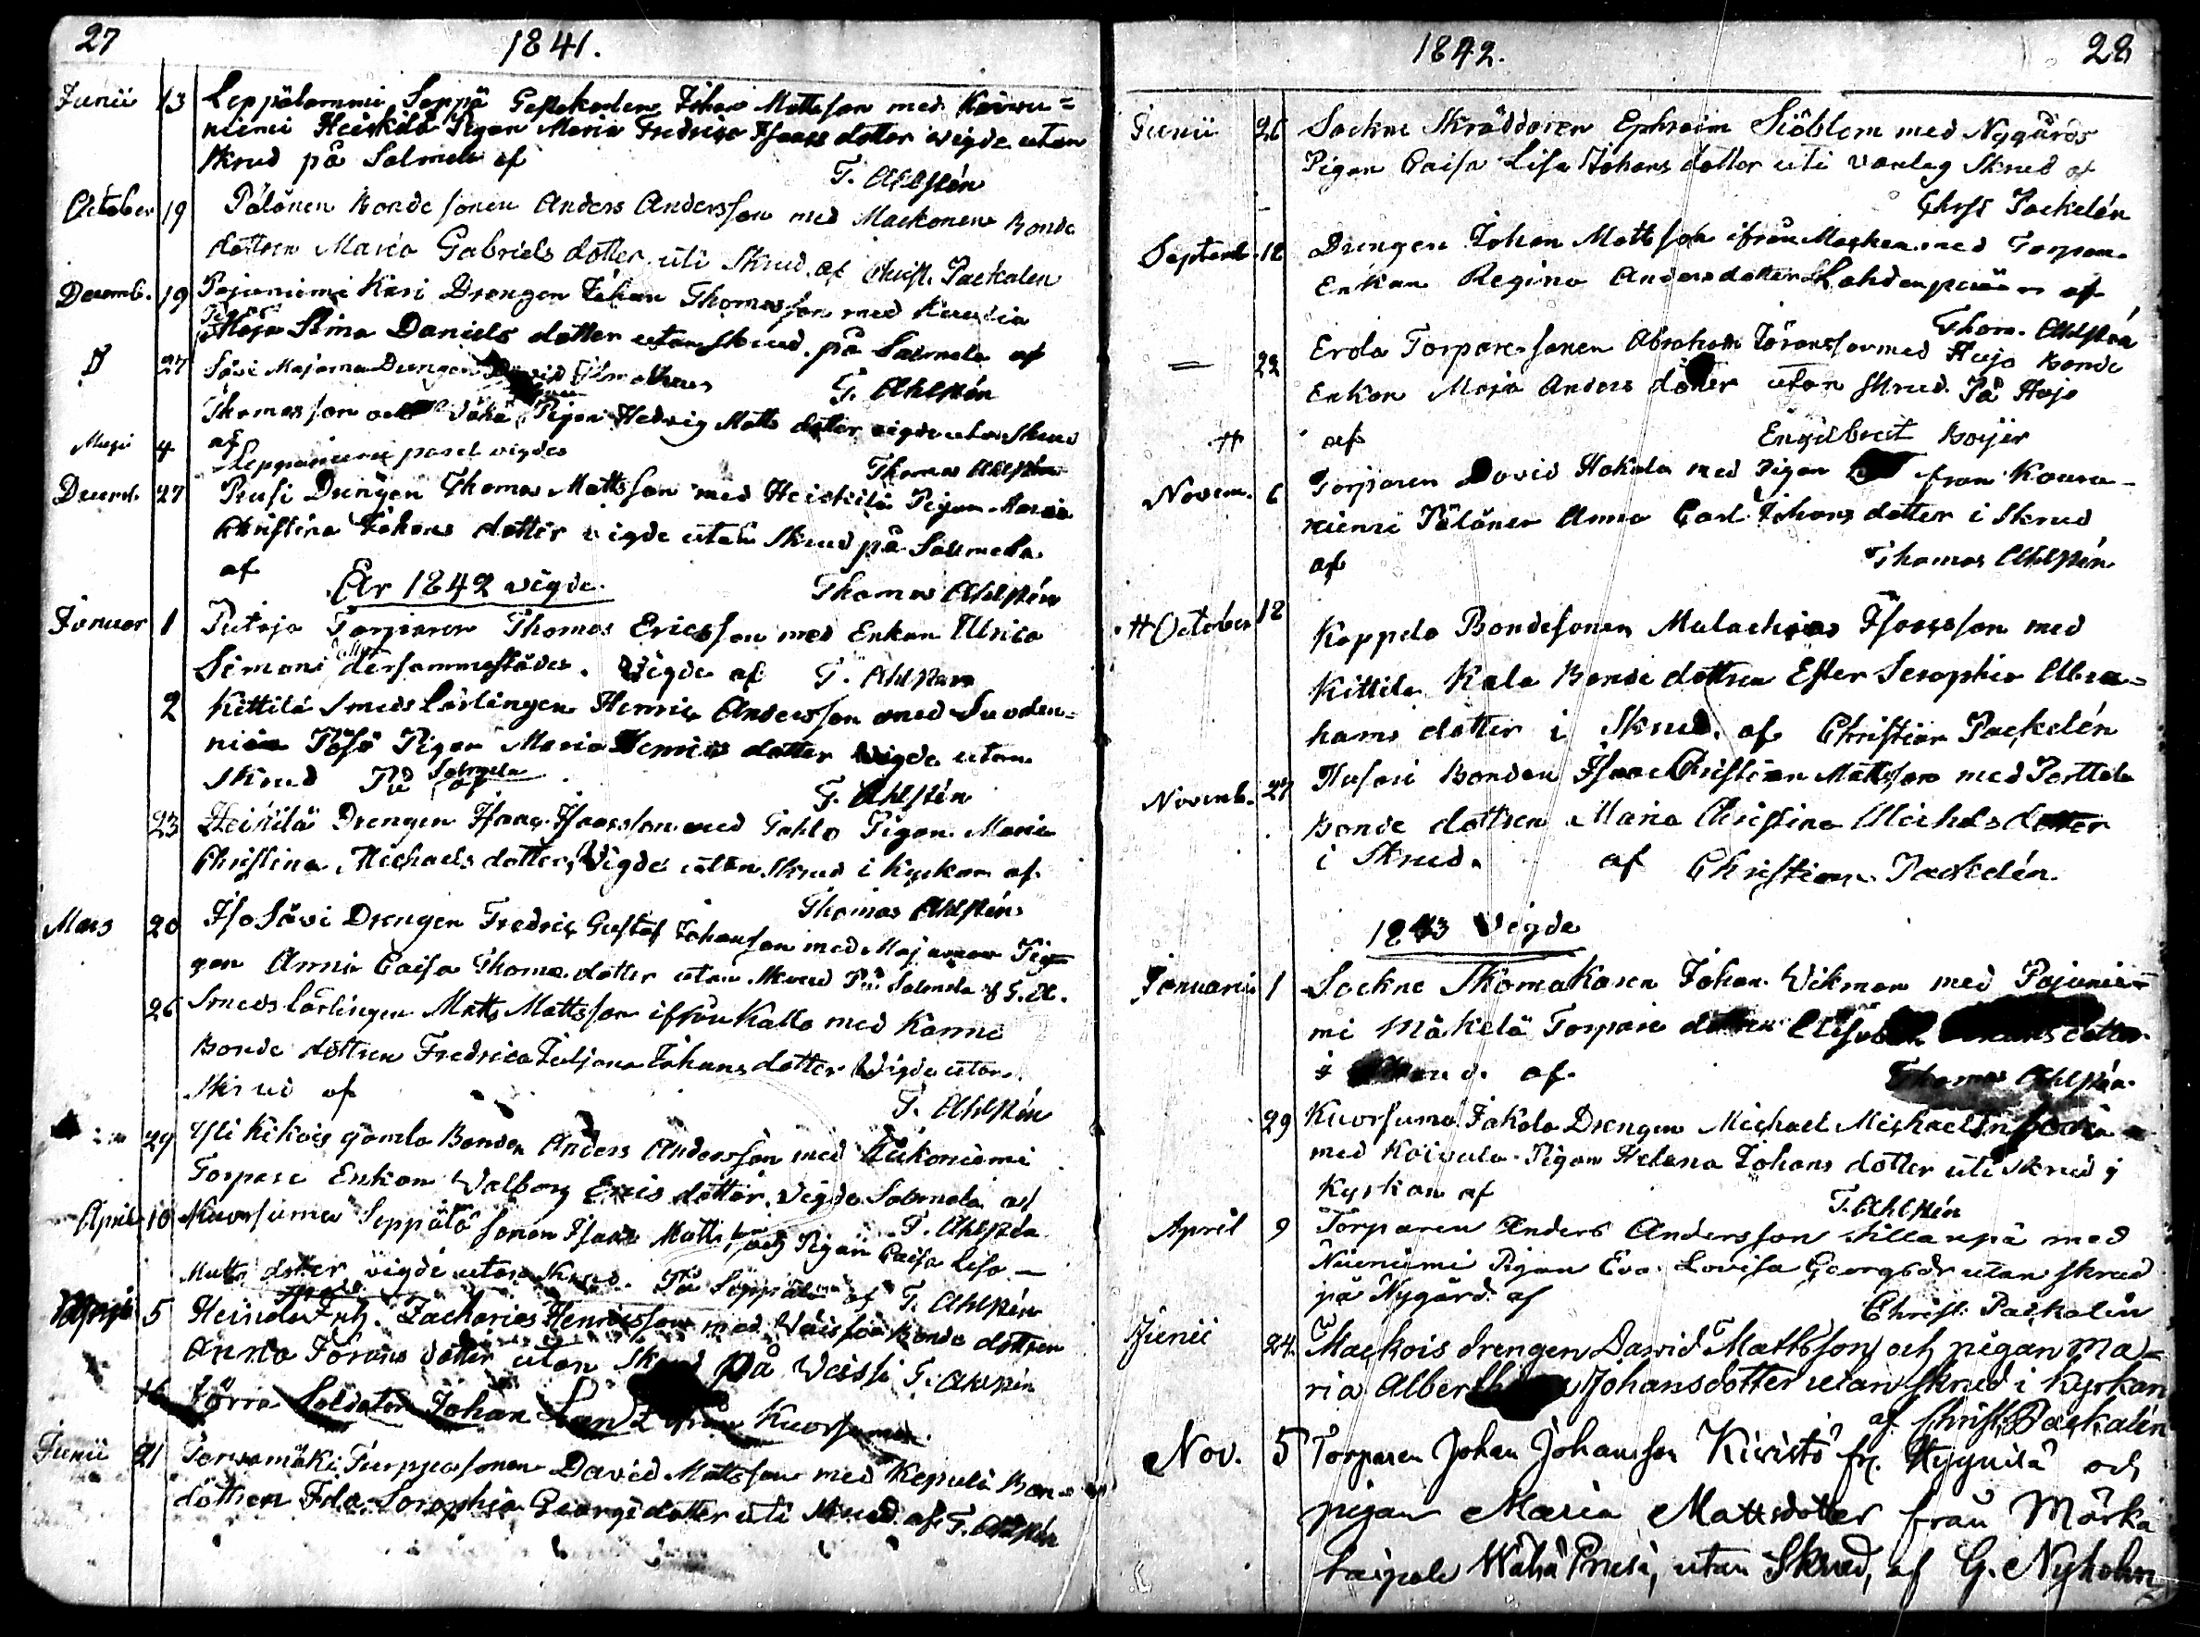 27
1841.
Junii 13 Leppälammi Seppä Gestekarlen Johan Mattsson med Koivu=
niemi Heikkilä Pigan Maria Fredrica Isaacs dotter wigde utan
skrud på Salmela af
T. Ahlstén
October 19 Pälönen Bonde sonen Anders Andersson med Mackonen Bonde
dottren Maria Gabriels dotter uti Skrud af Christ. Packalén
Decemb. 19 Pajuniemi Kari Drengen Johan Thomasson med
Pigan
Maja Stina Daniels dotter utan skrud på Salmela af
T. Ahlstén
D 27 Sävi Majama Drengen
Thomasson och Wähä Pigan Hedvig Matts dotter vigde utan Skrud
af
Thomas Ahlstén
4 paret vigdes
Decemb. 27 Prusi Drengen Thomas Mattsson med Heickilä Pigan Maria
Christina Johans dotter vigde utan Skrud på Salmela
af
Thomas Ahlstén
År 1842 vigde
Januar 1 Putaja Torparen Thomas Ericsson med Enkan Ulrica
Simons dotter dersammastädes. Vigde af T. Ahlstén
2 Kittilä Smeds Lärlingen Henric Andersson med Suoden=
Pigan Maria Henrics dotter Vigde utan
Skrud På Salmela af
T. Ahlstén
23 Heikilä Drengen Isaac Isaacsson med Pahlo Pigan Maria
Christina Michaels dotter, Vigde utan Skrud i kyrkan af
Thomas Ahlstén
Mars 20 Iso Sävi Drengen Fredric Gustaf Johansson med Majamaa Pi=
gan Anna Caisa Thoma dotter utan Skrud På Salmela af T. A.
26 Smeds lärlingen Matts Mattsson ifrån Kallo med Kanni
Bonde dottren Fredrica Juljana Johans dotter Vigde utan
Skrud af
T. Ahlstén
29 Yli Kikois gamla Bonden Anders Andersson med
Torpare Enkan Walborg Erics dotter. Vigde Salmela af
T. Ahlstén
April 10 Kuorsuma Seppälä sonen Isaac Mattsson och Pigan Caisa Lisa
Matts dotter vigde utan Skrud. På Seppälä af T. Ahlstén
5 Heinola Zacharias Henricsson med Waissi Bonde dottren
Anna Jörans dotter utan Skrud på Waissi T. Ahlstén
16 Förra Soldaten Johan Kuorsuma
Junii 21 Torvamäki sonen David Mattsson med Kepuli Bon=
dottren Ida Seraphia Georgs dotter uti Skrud af T. Ahlstén
1842.
28
Junii 26 Sockne Skräddaren Ephraim Siöblom med Nygårds
Pigan Caisa Lisa Johans dotter uti vanlig Skrud af
Christ Packalén
Septemb. 18 Drengen Johan Mattsson ifrån med Torpare
Enkan Regina Anders dotter Lahdenperä af
Thom. Ahlstén
— 22 Erola Torpare sonen Abraham Jöransson med Hujo Bonde
Enkan Maja Anders dotter utan skrud På Hujo
# af Engelbrect Boijer
Novem. 6 Torparen David Hakala med Pigan från Koura-
niemi Pälönen Anna Carl Johans dotter i Skrud
af Thomas Ahlstén
# October 18 Koppelo Bondesonen Malachias Isacsson med
Kittilä Kala Bonde dottren Ester Seraphia Abra=
hams dotter i Skrud. af Christian Packalén
Novemb. 27 Husari Bonden Isaac Christian Mattsson med Porttila
Bonde dottren Maria Christina Michels dotter
i Skrud. af Christian Packalén.
1843 Vigde
Januarii 1 Sockne Skomakaren Johan Wikman med Pajunie=
mi Mäkelä Torpare dottren Elisabeth dotter
i Skrud. af Thomas Ahlstén.
29 Kuorsuma Jakola Drengen Michael Michaelsson
med Koivula Pigan Helena Johans dotter uti Skrud i
Kyrkan af
T. Ahlstén
April 9 Torparen Anders Andersson Sillanpä med
Niiniemi Pigan Eva Lovisa Georgsdr utan skrud
på Nygård af Christ. Packalén
Junii 24 Mackois drengen David Mattsson och pigan Ma=
ria Albertina Johansdotter utan skrud i kyrkan
af Christ. Packalén
Nov. 5 Torparen Johan Johansson Kivistö fr. Hyynilä och
pigan Maria Mattsdotter från Mörkä
taipale Wähä Prusi, utan Skrud, af G. Nyholm